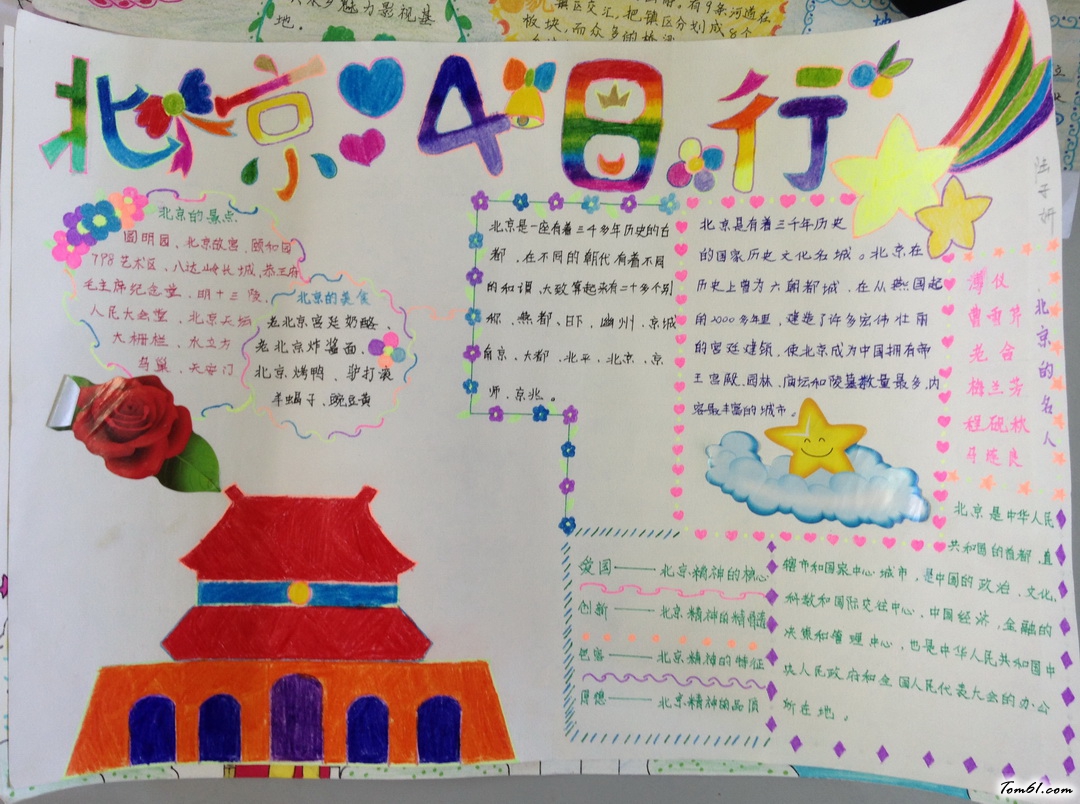 魅力影视基
地。
镇区交汇,把镇区分划成8个
板块,而众多的桥
北京4日行
北京的景点
圆明园、北京故宫、颐和园
798艺术区、八达岭长城、恭王府
毛主席纪念堂、明十三陵、
人民大会堂、北京天坛
大栅栏、水立方
鸟巢、天安门
北京的美食
老北京宫廷奶酪、
老北京炸酱面、
北京烤鸭、驴打滚
羊蝎子、豌豆黄
北京是一座有着三千多年历史的古
都,在不同的朝代有着不同
的称谓,大致算起来有二十多个别
称、燕都、日下、幽州、京城
南京、大都、北平、北京、京
师、京兆。
北京是有着三千年历史
的国家历史文化名城。北京在
历史上曾为六朝都城,在从燕国起
的2000多年里,建造了许多宏伟壮丽
的宫廷建筑,使北京成为中国拥有帝
王宫殿、园林、庙坛和陵墓数量最多,内
容最丰富的城市。
北京的名人
溥仪
曹雪芹
老舍
梅兰芳
程砚秋
马连良
爱国——北京精神的核心
创新——北京精神的精髓
包容——北京精神的特征
厚德——北京精神的品质
北京是中华人民
共和国的首都、直
辖市和国家中心城市,是中国的政治、文化、
科教和国际交往中心,中国经济、金融的
决策和管理中心,也是中华人民共和国中
央人民政府和全国人民代表大会的办公
所在地。
Tom61.com